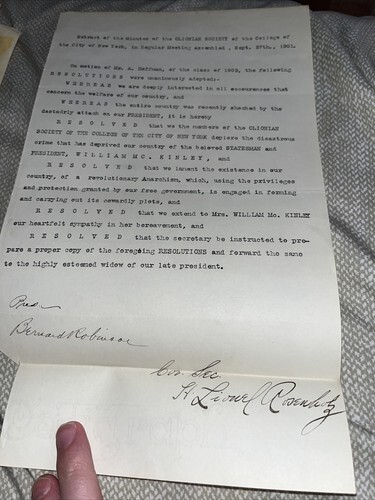 Extract of the Minutes of the CLIONIAN SOCIETY of the College of
the City of New York, in Regular Meeting assembled, Sept. 27th., 1901.
On motion of Mr. A. of the class of 1902, the following
R E S O L U T I O N S were unanimously adopted:
W H E R E A S we are deeply interested in all occurrences that
concern the welfare of our country, and
W H E R E A S the entire country was recently shocked by the
dastardly attack on our PRESIDENT, it is hereby
R E S O L V E D that we the members of the CLIONIAN
SOCIETY OF THE COLLEGE OF THE CITY OF NEW YORK deplore the disastrous
crime that has deprived our country of the beloved STATESMAN and
PRESIDENT, WILLIAM MC. KINLEY, and
R E S O L V E D that we lament the existence in our
country, of a revolutionary Anarchism, which, using the privileges
and protection granted by our free government, is engaged in forming
and carrying out its cowardly plots, and
R E S O L V E D that we extend to Mrs. WILLIAM Mc. KINLEY
our heartfelt sympathy in her bereavement, and
R E S O L V E D that the secretary be instructed to pre-
pare a proper copy of the foregoing RESOLUTIONS and forward the same
to the highly esteemed widow of our late president.
Pres
Bernard Robinson
Cor. Sec.
H Lionel Rosenholz